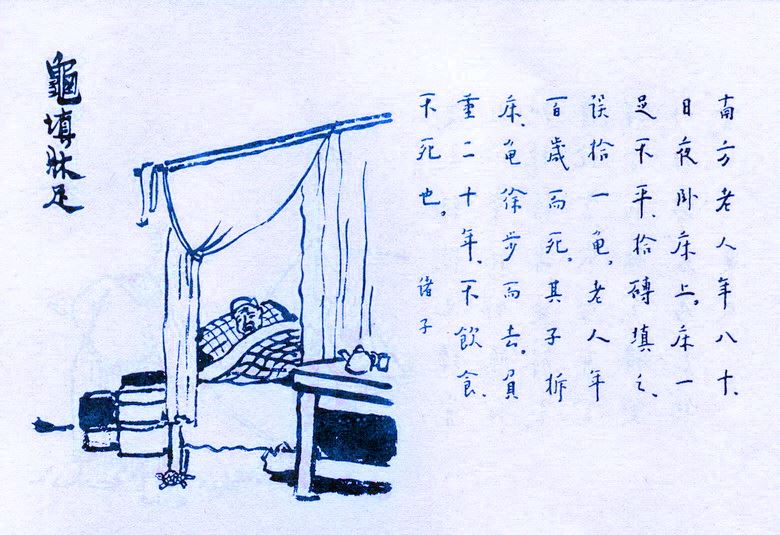 龜填牀足
南方老人年八十、
日夜卧床上。床一
足不平、拾磚填之、
误拾一龟。老人年
百歲而死。其子拆
床、龟徐步而去。負
重二十年、不飲食、
不死也。諸子